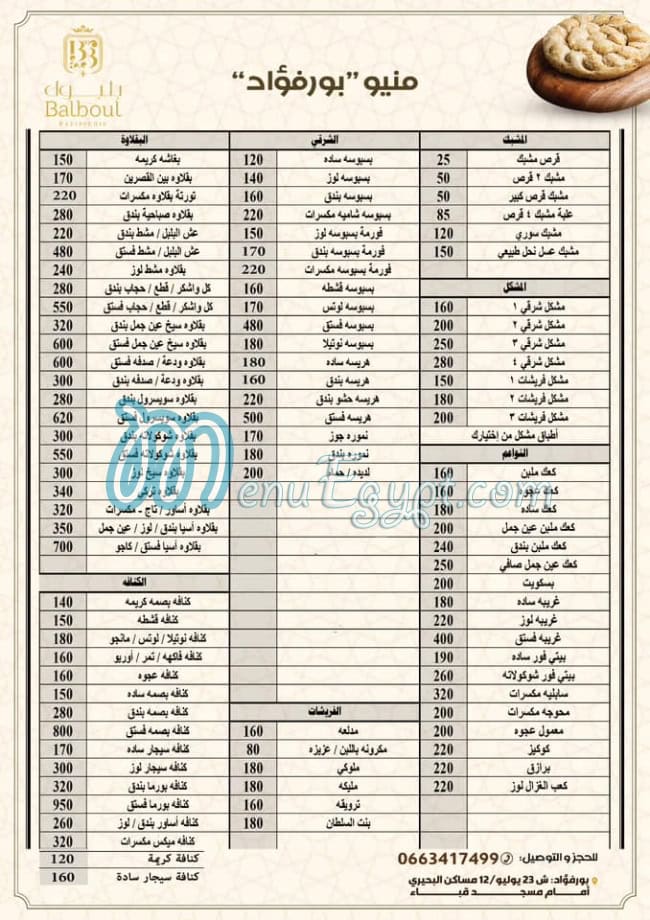 بلبول
Balboul
PATISSERIE
منيو "بورفؤاد"
المشبك
قرص مشبك 25
مشبك ٢ قرص 50
مشبك قرص كبير 50
علبة مشبك ٤ قرص 85
مشبك سوري 120
مشبك عسل نحل طبيعي 150
المشكل
مشكل شرقي ١ 160
مشكل شرقي ٢ 200
مشكل شرقي ٣ 250
مشكل شرقي ٤ 280
مشكل فريشات ١ 150
مشكل فريشات ٢ 180
مشكل فريشات ٣ 200
أطباق مشكل من إختيارك
النواعم
كعك ملبن 160
كعك عجوه 160
كعك ساده 180
كعك ملبن عين جمل 200
كعك ملبن بندق 240
كعك عين جمل صافي 250
بسكويت 200
غريبه ساده 180
غريبه لوز 220
غريبه فستق 400
بيتي فور ساده 190
بيتي فور شوكولاته 260
سابليه مكسرات 320
محوجه مكسرات 200
معمول عجوه 200
كوكيز 220
برازق 220
كعب الغزال لوز 220
الشرقي
بسبوسه ساده 120
بسبوسه لوز 140
بسبوسه بندق 160
بسبوسه شاميه مكسرات 220
فورمة بسبوسه لوز 150
فورمة بسبوسه بندق 170
فورمة بسبوسه مكسرات 220
بسبوسه قشطه 160
بسبوسه لوتس 170
بسبوسه فستق 480
بسبوسه نوتيلا 180
هريسه ساده 180
هريسه بندق 160
هريسه حشو بندق 220
هريسه فستق 500
نموره جوز 170
نموره بندق 180
لديده / حماد 200
الفريشات
مدلعه 160
مكرونه باللبن / عزيزه 80
ملوكي 180
مليكه 180
ترويقه 160
بنت السلطان 180
البقلاوة
بغاشه كريمه 150
بقلاوه بين القصرين 170
تورتة بقلاوه مكسرات 220
بقلاوه صباحية بندق 280
عش البلبل / مشط بندق 220
عش البلبل / مشط فستق 480
بقلاوه مشط لوز 240
كل واشكر / قطع / حجاب بندق 280
كل واشكر / قطع / حجاب فستق 550
بقلاوه سيخ عين جمل بندق 320
بقلاوه سيخ عين جمل فستق 600
بقلاوه ودعة / صدفه فستق 600
بقلاوه ودعة / صدفه بندق 300
بقلاوه سويسرول بندق 280
بقلاوه سويسرول فستق 620
بقلاوه شوكولاته بندق 300
بقلاوه شوكولاته فستق 550
بقلاوه سيخ لوز 300
بقلاوه تركي 340
بقلاوه أساور / تاج - مكسرات 320
بقلاوه أسيا بندق / لوز / عين جمل 350
بقلاوه أسيا فستق / كاجو 700
الكنافه
كنافه بصمه كريمه 140
كنافه قشطه 150
كنافه نوتيلا / لوتس / مانجو 180
كنافه فاكهه / تمر / أوريو 160
كنافه عجوه 160
كنافه بصمه ساده 150
كنافه بصمه بندق 280
كنافه بصمه فستق 800
كنافه سيجار ساده 170
كنافه سيجار لوز 300
كنافه بورما بندق 320
كنافه بورما فستق 950
كنافه أساور بندق / لوز 260
كنافه ميكس مكسرات 320
كنافة كريمة 120
كنافة سيجار سادة 160
للحجز و التوصيل: 0663417499
بورفؤاد: ش 23 يوليو /12 مساكن البحيري
أمام مسجد قباء
MenuEgypt.com